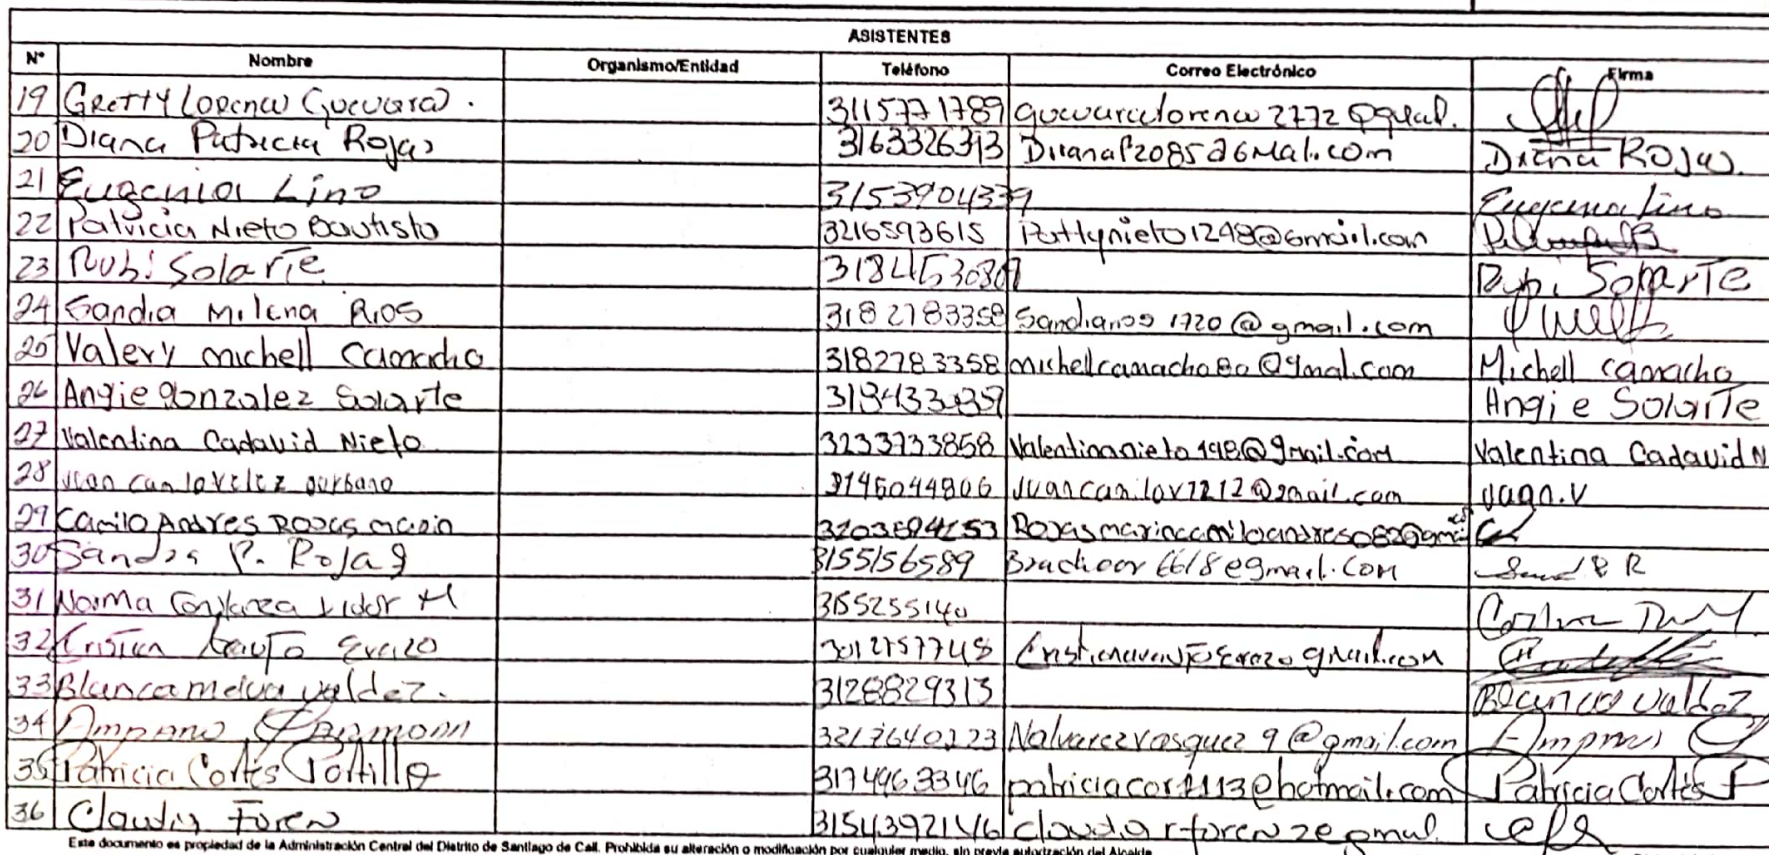 ASISTENTES
N° Nombre Organismo/Entidad Teléfono Correo Electrónico Firma
19 Gretty Lorena Guevara. 3115771789 guevaralorena2772@gmal.
20 Diana Patricia Rojas 3163326313 DianaP2085@Gmal.com Diana Rojas.
21 Eugenia Lino 3153904339 Eugenia Lino
22 Patricia Nieto Bautista 3216593615 Pattynieto1248@Gmail.com
23 Rubi Solarte 3184530807 Rubi Solarte
24 Sandra Milena Rios 3182783358 Sandrarios1720@gmail.com
25 Valery michell Camacho 3182783358 michellcamacho80@gmal.com Michell camacho
26 Angie gonzalez Solarte Angie Solarte
27 Valentina Cadavid Nieto 3233733858 Valentinanieto198@gmail.com Valentina Cadavid N
28 Juan Camilo Velez Burbano 3146044806 Juancamilov1212@gmail.com Juan.V
29 Camilo Andres Rojas marin Rojasmarincamiloandres082@gmai
30 Sandra P. Rojas 3155156589 6618@gmail.com
31 Norma Constanza M 3155255140
32 Cristian Erazo gmail.com
33 Blanca melva valdez. 3128829313 Blanca valdez
34 Amparo 3217640223 Nalvarezvasquez9@gmail.com Amparo
35 Patricia Cortés Portillo 3174963346 patriciacor1113@hotmail.com Patricia Cortés P
36 Claudia Foren 3154392146
Este documento es propiedad de la Administración Central del Distrito de Santiago de Cali. Prohibida su alteración o modificación por cualquier medio, sin previa autorización del Alcalde